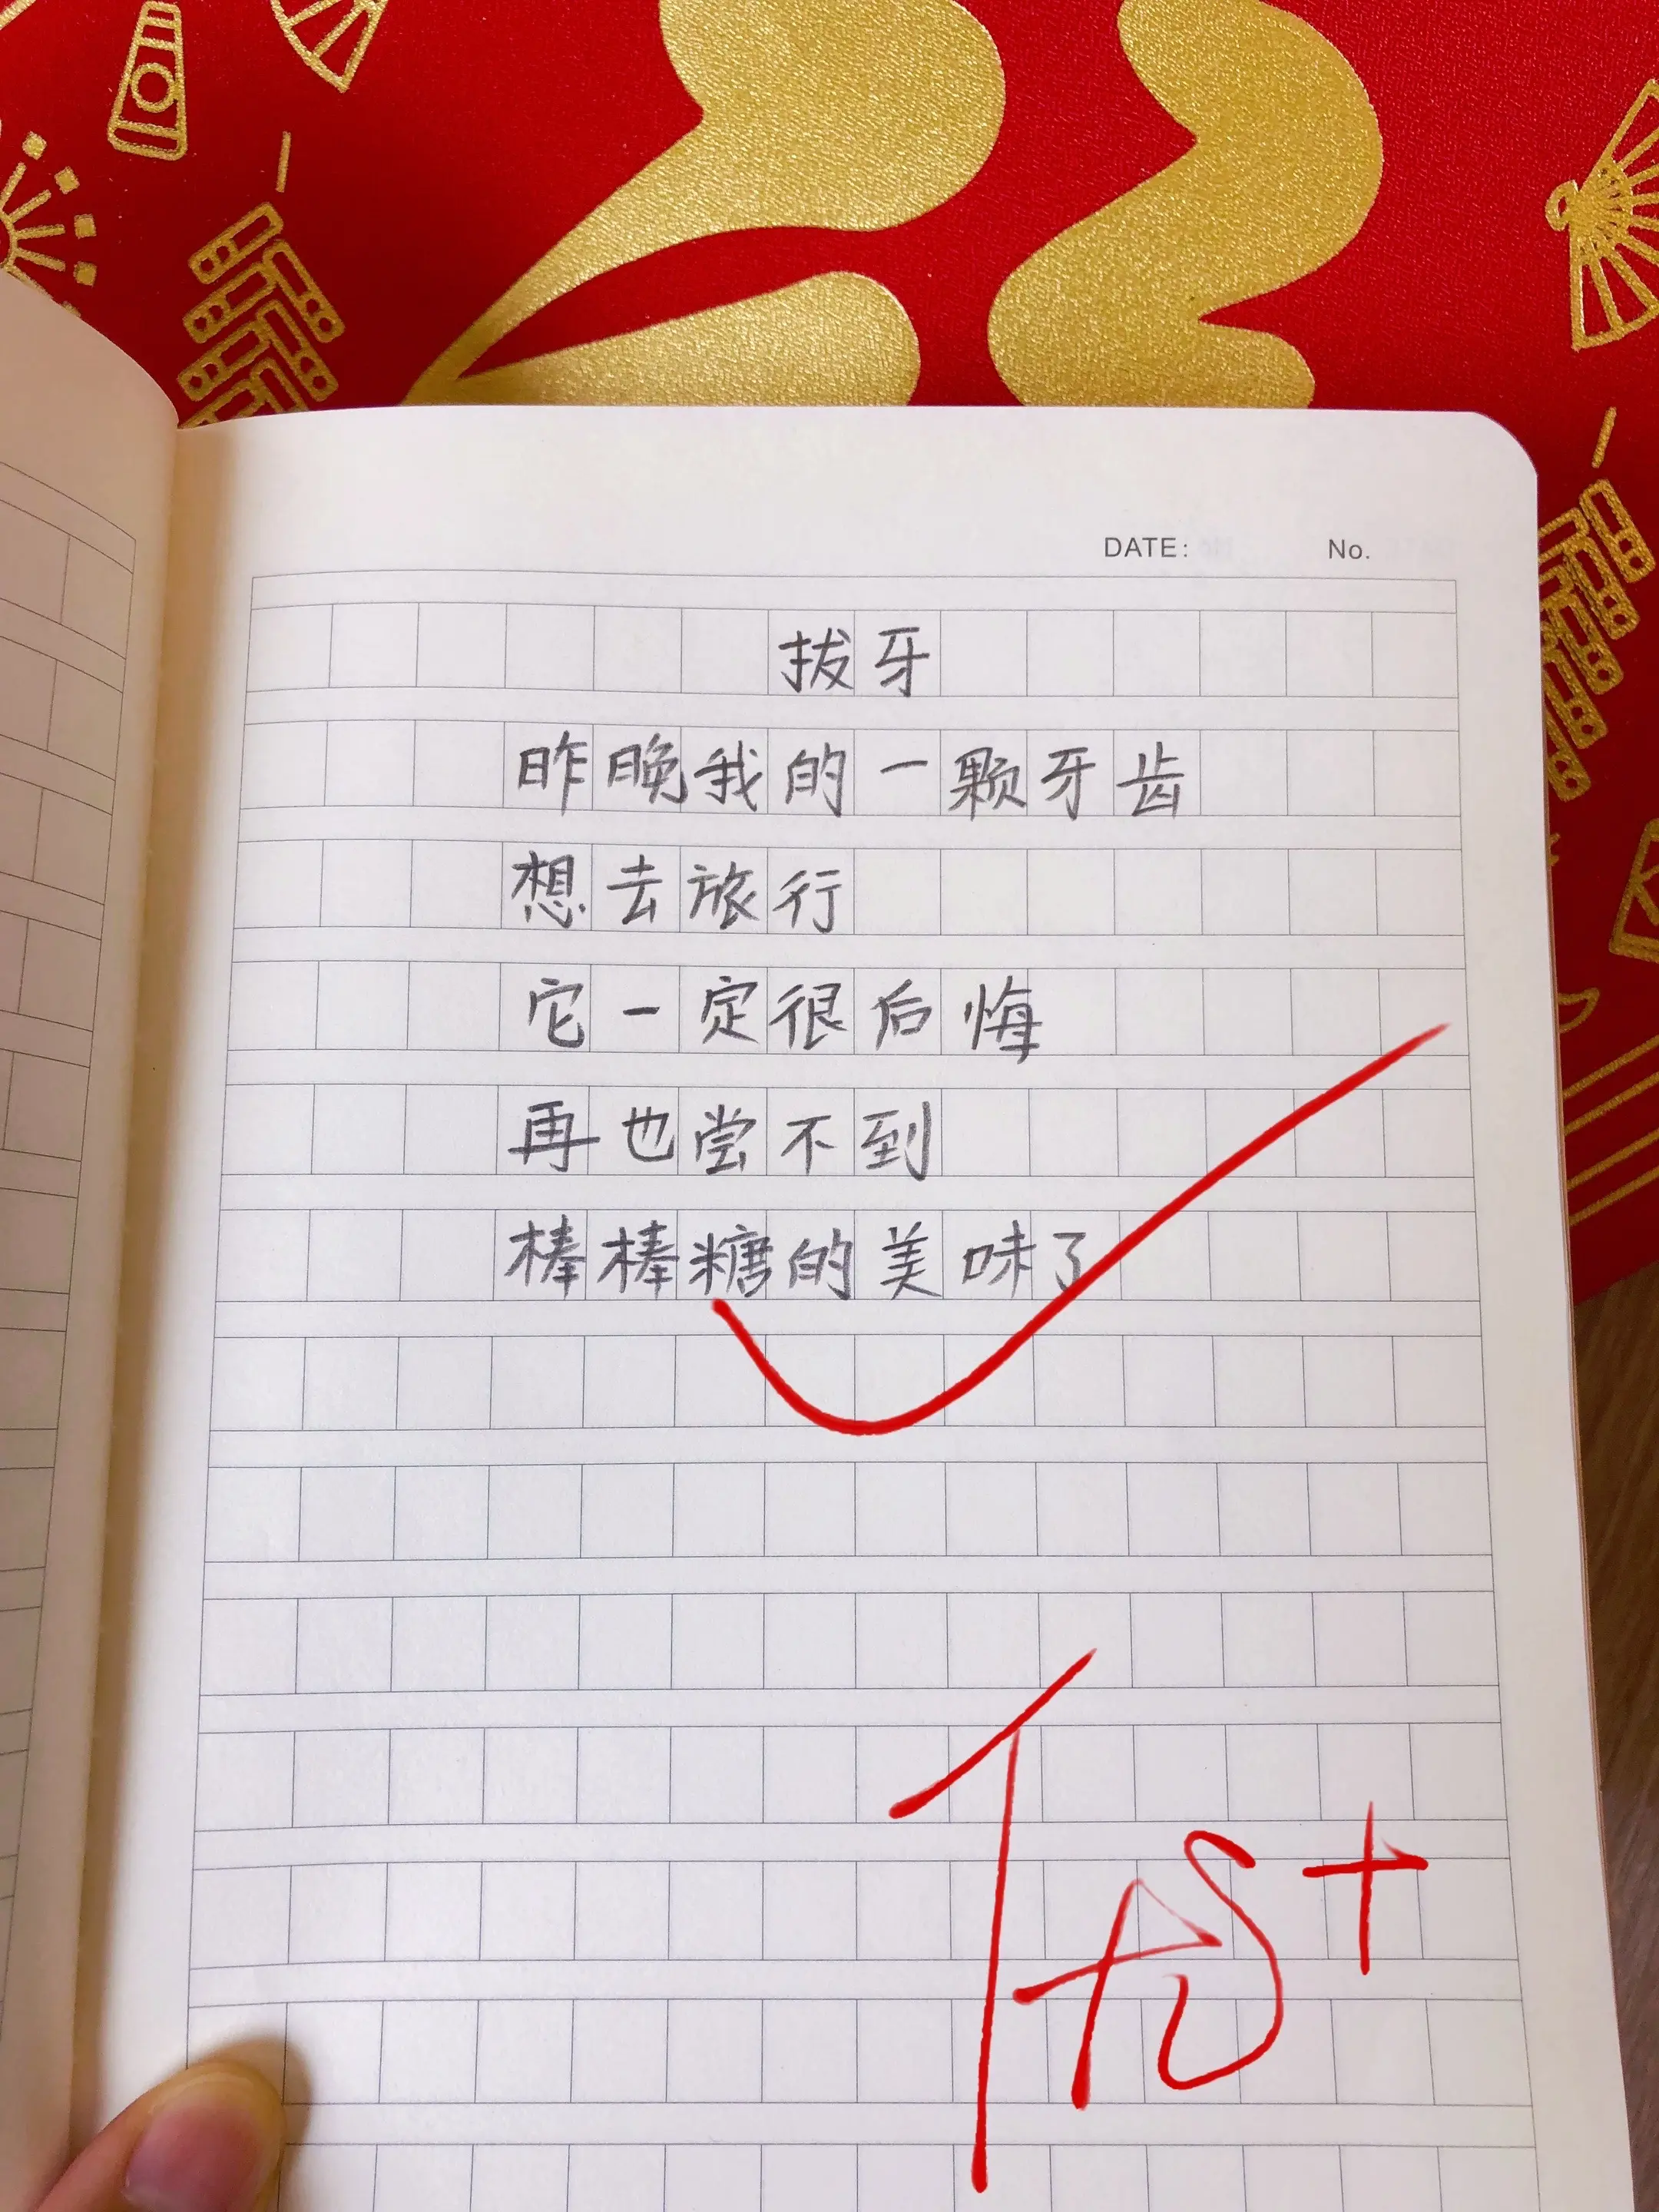 DATE: No.
拔牙
昨晚我的一颗牙齿
想去旅行
它一定很后悔
再也尝不到
棒棒糖的美味了